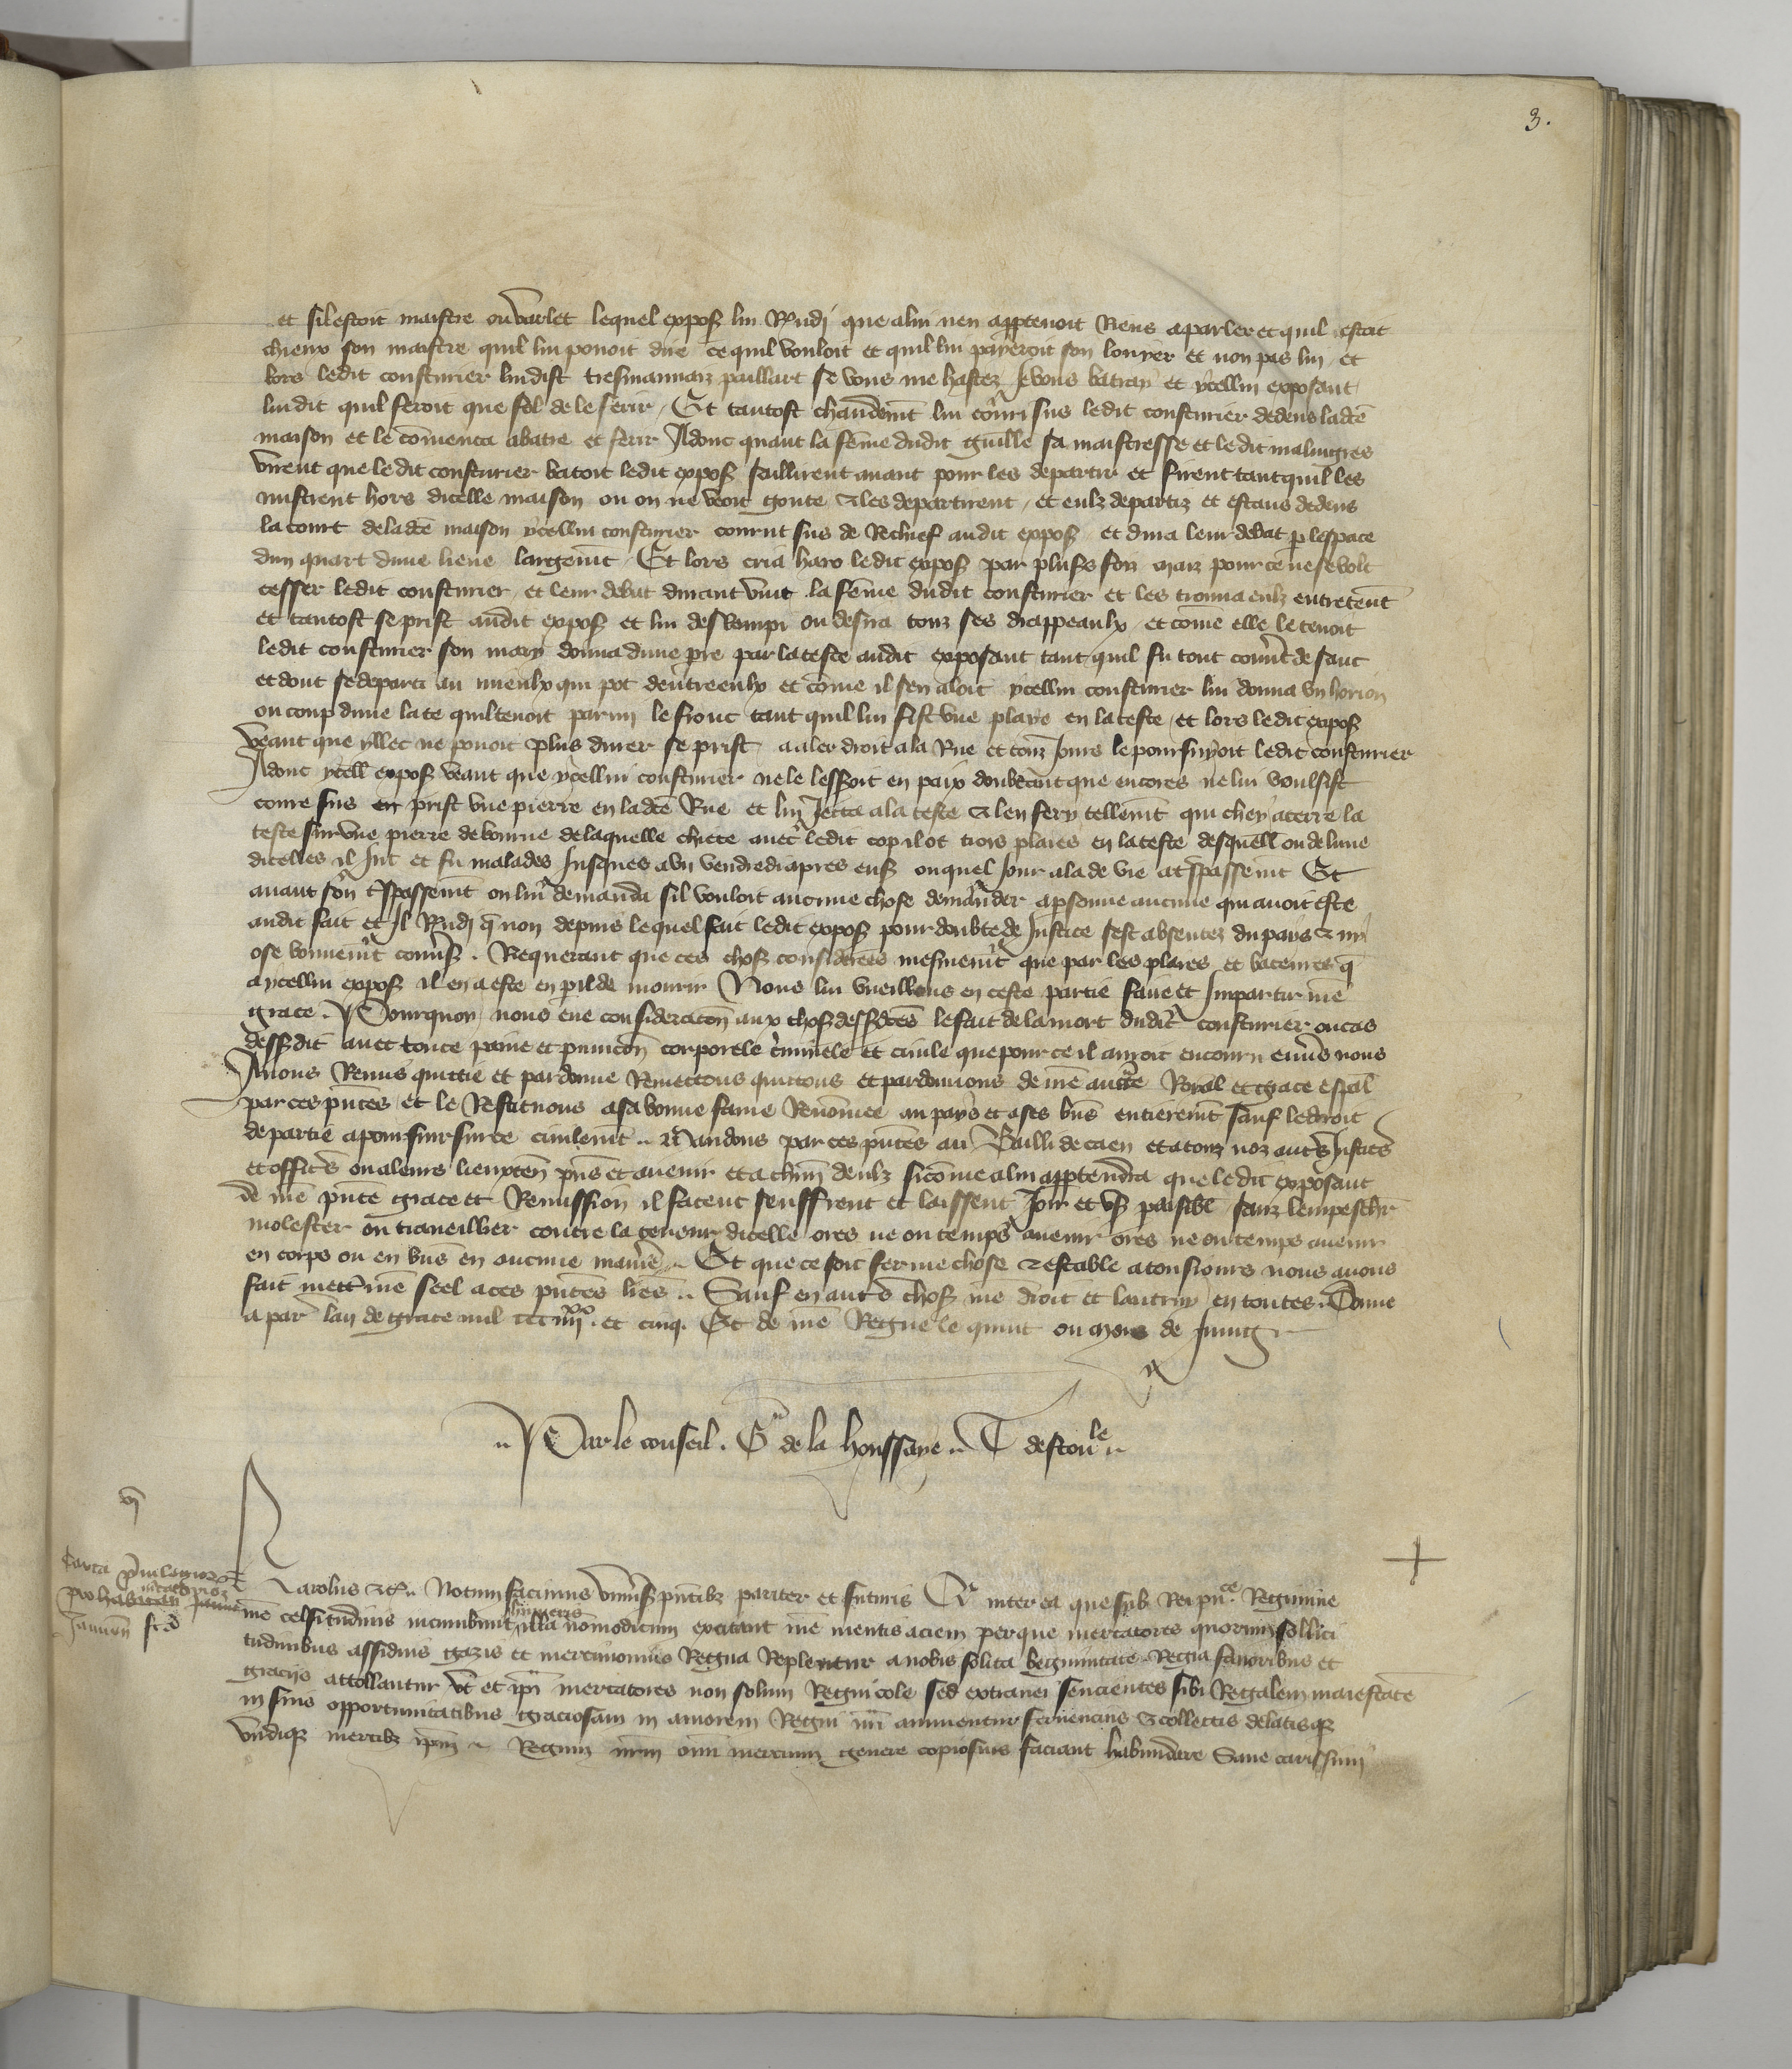 3.
et sil estoit maistre ou varlet lequel expos. lui Rndi que a lui nen apptenoit Riens a parler et quil estoit
chieux son maistre quil lui povoit dire ce quil vouloit et quil lui paieroit son louyer et non pas lui / et
lors ledit cousturier lui dist tresmauvaiz paillart se vous me hastez Je vous batray et ycellui exposant
lui dit quil feroit que fol de le ferir / Et tantost chaudemt lui couri sus ledit cousturier dedens ladce
maison et le comenca a batre et ferir Adonc quant la feme dudit guille sa maistresse et ledit malingres
virent que ledit cousturier batoit ledit expos. saillirent avant pour les departir et firent tant quil les
mistrent hors dicelle maison ou on ne veoit goute & les departirent / et eulz departiz et estans dedens
la court de ladce maison ycellui cousturier courut sus de Rechief audit expos. et dura leur debat p lespace
dun quart dune lieue largemt / Et lors cria haro ledit expos. par pluss foiz maiz pour ce ne se volt
cesser ledit cousturier / et leur debat durant vint la feme dudit cousturier et les trouva eulz entretent
et tantost se prist audit expos. et lui desrompi ou descira touz ses drappeaulx et come elle le tenoit
ledit cousturier son mary donna dune pre par la teste audit exposant tant quil fu tout couvt de sanc
et dont se departi au mieulx qui pot dentre eulx et come il sen aloit ycellui cousturier lui donna un horion
ou coup dune late quil tenoit parmy le front tant quil lui fist une plaie en la teste / et lors ledit expos.
veant que yllec ne povoit plus durer se prist a aler droit a la Rue et touz Jours le poursuyvoit ledit cousturier
Adonc ycell expos. veant que ycellui cousturier ne le lessoit en paix doubtant que encores ne lui voulsist
courre sus en prist une pierre en ladce Rue et lui Jetta a la teste & len fery tellemt qui chey a terre la
teste sur une pierre de bonne de laquelle chiete avec ledit cop il ot trois plaies en la teste desquell ou de lune
dicelles il Jut et fu malades Jusques a un vendredi apres ens. ouquel Jour ala de vie a trspassemt Et
avant son trspassemt on lui demanda sil vouloit aucune chose demander a psonne aucune qui avoit este
audit fait et Il Rndi q non depuis lequel fait ledit expos. pour doubte de Justice sest absentez du pais & ny
ose bonnemt convs. Requerant que ces chos. considerees mesmemt que par les plaies et bateures q
a ycellui expos. il en a este en pil de mourir Nous lui vueillons en ceste partie faire et Impartir nre
grace. Pourquoy nous eue consideracon aux chos. dessdces le fait de la mort dudit cousturier ou cas
dessdit avec toute paine et punicon corporele criminele et civile que pour ce il auroit encouru envs nous
Avons Remis quittie et pardonne Remettons quittons et pardonnons de nre aucte Roial et grace espal
par ces pntes et le Restituons a sa bonne fame Renomee au pays et a ses bns entieremt sauf le droit
de partie a poursuir sur ce civilemt. Mandons par ces pntes au Bailli de caen et a touz noz auts Justics
et offics ou a leurs lieuxten pns et avenir et a chun deulz si come a lui apptendra que ledit exposant
de nre pnte grace et Remission il facent seuffrent et laissent Joir et us. paisibl sanz lempeschr
molester ou traveillier contre la teneur dicelle ores ne ou temps avenir ores ne ou temps avenir
en corps ou en bns en aucune manre. Et que ce soit ferme chose & estable a tousiours nous avons
fait mett nre seel a ces pntes lres. Sauf en auts chos. nre droit et lautruy en toutes. Donne
a par lan de grace mil ccc iiiixx. et cinq. Et de nre Regne le quint ou mois de Juing
Par le conseil. G de la houssaye. T destoule
vj
Carta
Karolus &c. Notum facimus univs. pntibz pariter et futuris Qr inter ea que sub Rei pu.ce Regimine
nre celsitudinis incumbunt humeris illa no modicum excitant nre mentis aciem per que mercatores quorum sollici
tudinibus assiduis gazis et mercimoniis Regna Replentur a nobis solita begninitate Regia favoribus et
graciis attollantur Ut et ipi mercatores non solum Regnicole sed extranei sencientes sibi Regalem maiestate
in suis opportunitatibus graciosam in amorem Regni nri animentur fervencius & collectis delatisqz
undiqz mercibz ipm Regnum nrm omi mercium genere copiosius faciant habundare Sane carissimi